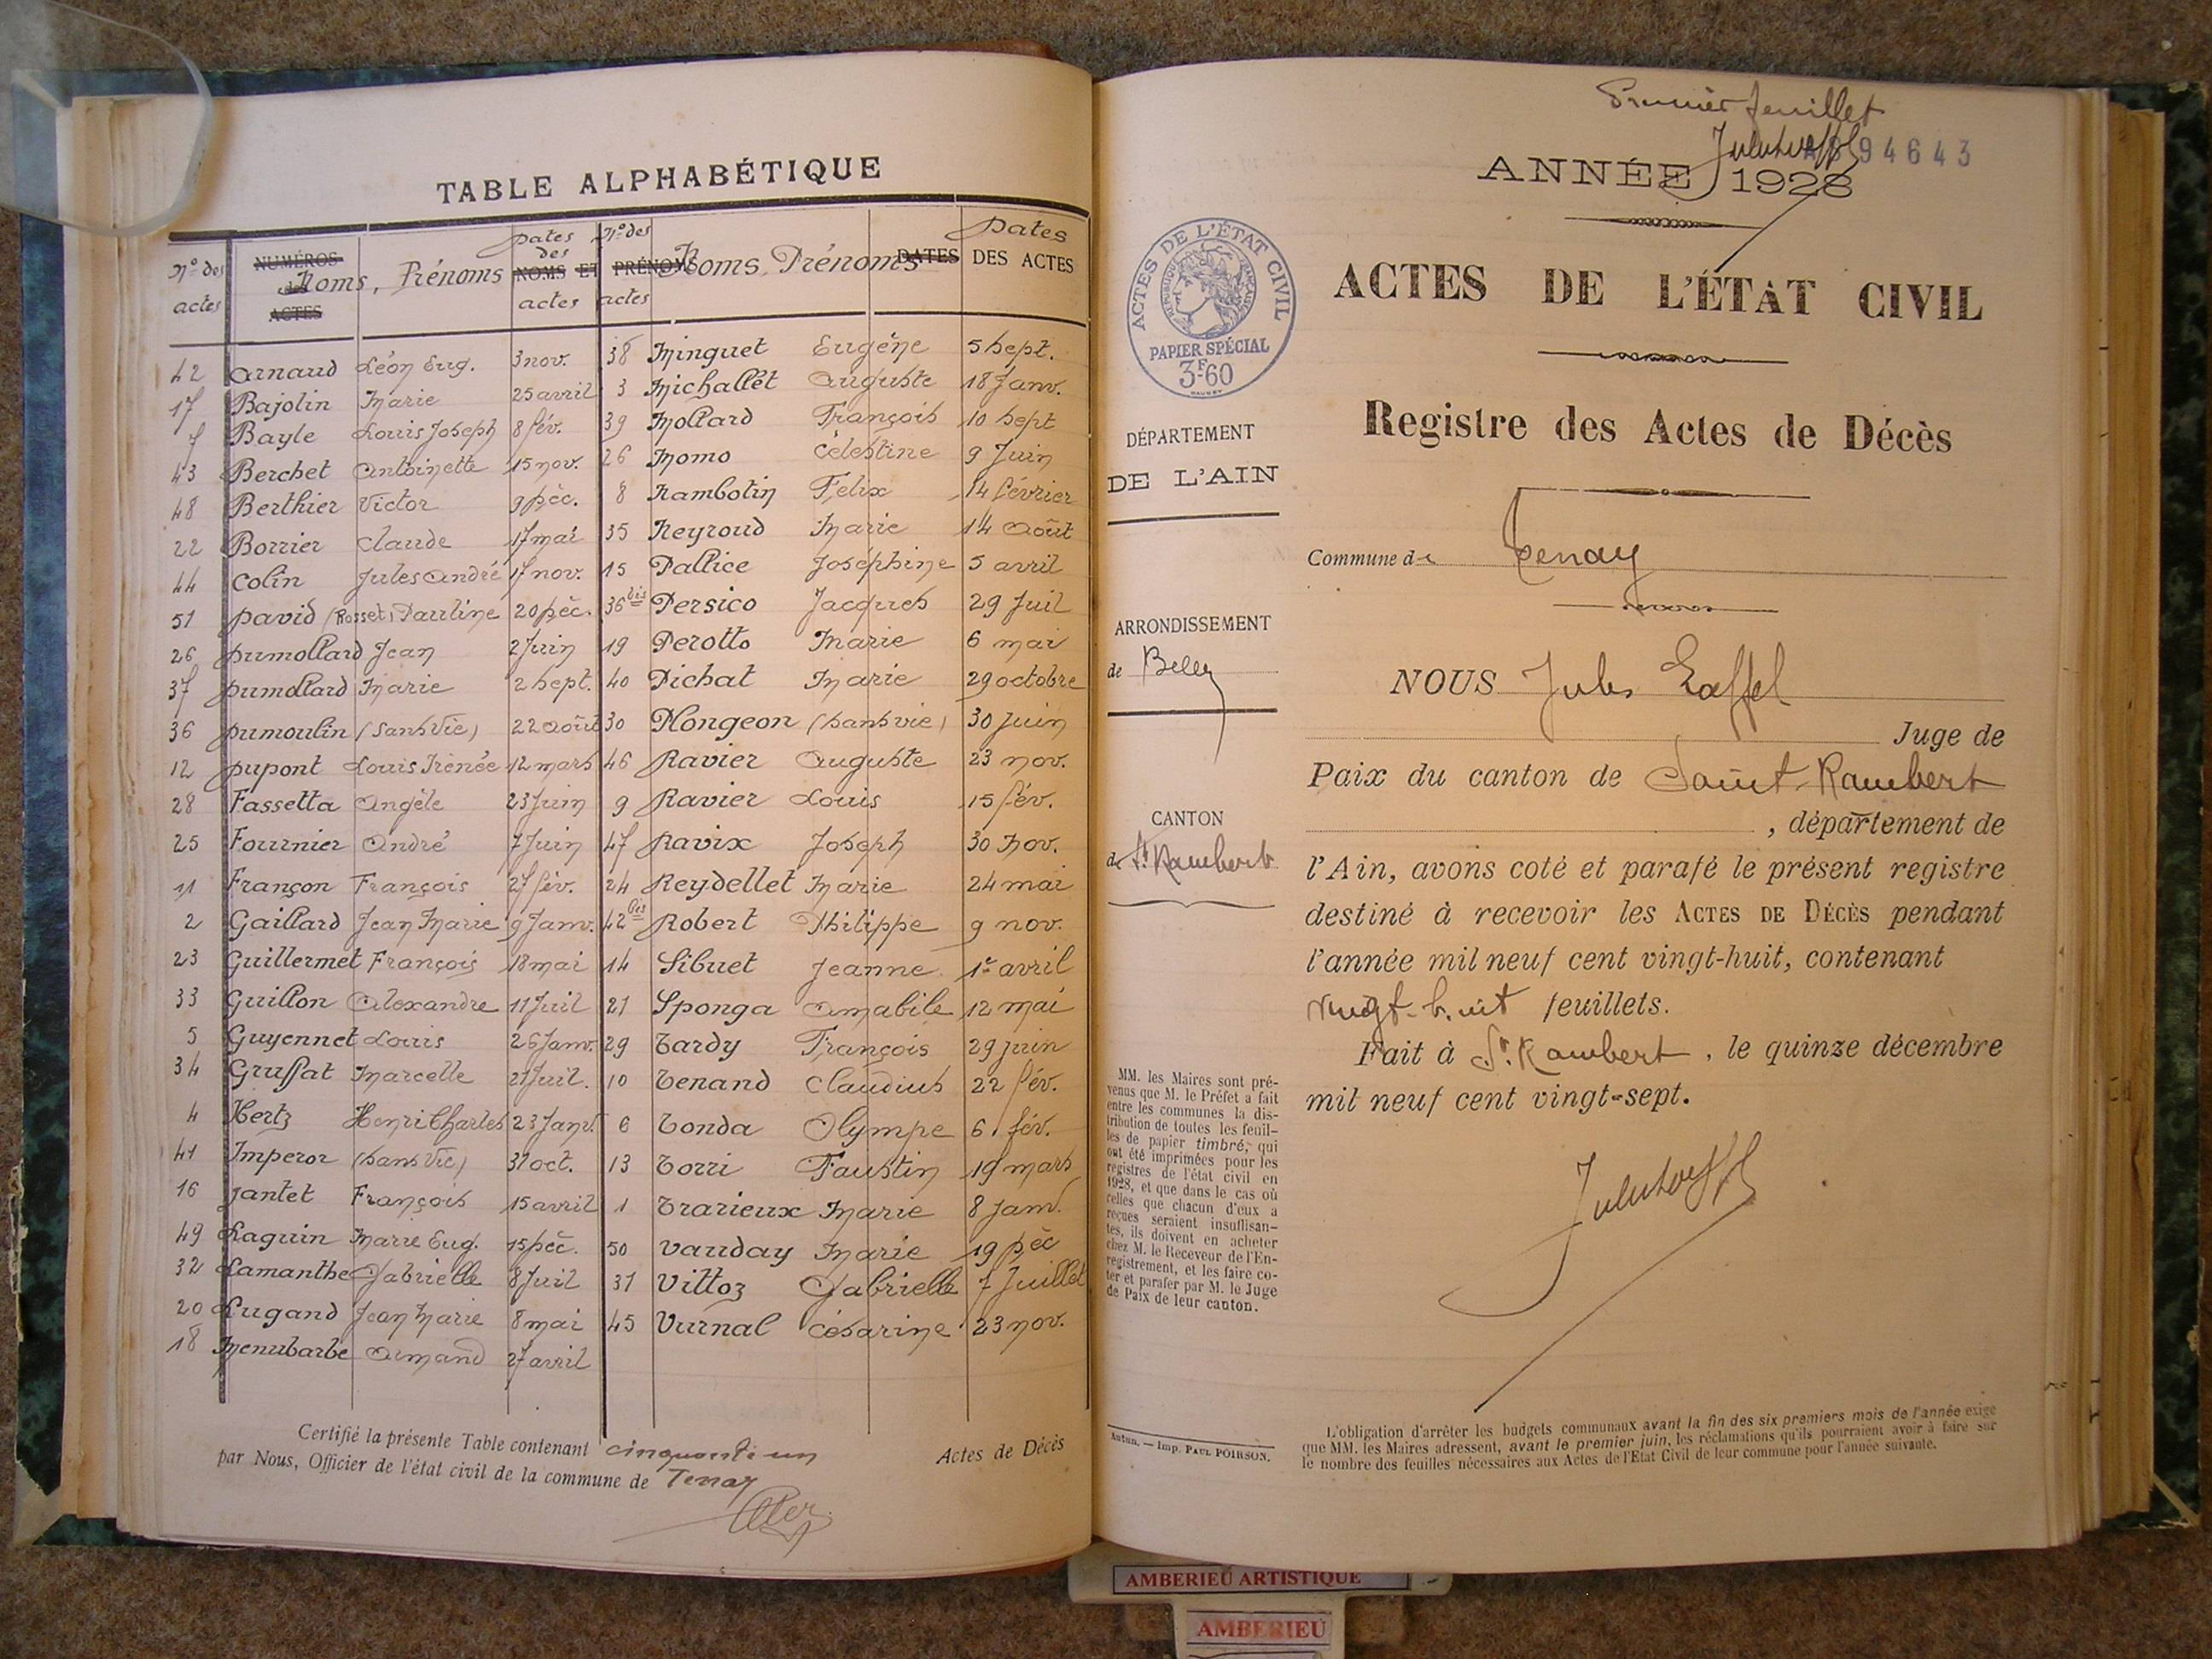 TABLE ALPHABÉTIQUE
Nos des actes NUMÉROS des ACTES Noms, Prénoms Dates des NOMS ET actes Nos des PRÉNOMS actes Noms, Prénoms DATES Dates DES ACTES
42 Arnaud Léon Eug. 3 nov.
17 Bajolin Marie 25 avril
7 Bayle Louis Joseph 8 fév.
43 Berchet Antoinette 15 nov.
48 Berthier Victor 9 Déc.
22 Borrier Claude 17 mai
44 Colin Jules André 17 nov.
51 David (Rosset) Pauline 20 Déc.
26 Dumollard Jean 2 Juin
37 Dumollard Marie 2 Sept.
36 Dumoulin (Sans Vie) 22 Août
12 Dupont Louis Irénée 12 mars
28 Fassetta Angèle 23 Juin
25 Fournier André 7 Juin
11 Françon François 27 fév.
2 Gaillard Jean Marie 9 Janv.
23 Guillermet François 18 mai
33 Guillon Alexandre 11 Juil
5 Guyennet Louis 26 Janv.
34 Grussat Marcelle 21 Juil.
4 Hertz Henri Charles 23 Janv.
41 Imperor (Sans Vie) 31 oct.
16 Jantet François 15 avril
49 Laguin Marie Eug. 15 Déc.
32 Lamanthe Gabrielle 8 Juil
20 Lugand Jean Marie 8 mai
18 Menubarbe Armand 27 avril
38 Minguet Eugène 5 Sept.
3 Michallet Auguste 18 Janv.
39 Mollard François 10 Sept
26 Momo Célestine 9 Juin
8 Nambotin Felix 14 février
35 Neyroud Marie 14 Août
15 Pallice Joséphine 5 avril
36 bis Persico Jacques 29 Juil
19 Perotto Marie 6 mai
40 Pichat Marie 29 octobre
30 Plongeon (Sans vie) 30 Juin
46 Ravier Auguste 23 nov.
9 Ravier Louis 15 fév.
47 Ravix Joseph 30 Nov.
24 Reydellet Marie 24 mai
42 bis Robert Philippe 9 nov.
14 Sibuet Jeanne 1er avril
21 Sponga Amabile 12 mai
29 Tardy François 29 juin
10 Tenand Claudius 22 fév.
6 Tonda Olympe 6 fév.
13 Torri Faustin 19 mars
1 Trarieux Marie 8 Janv.
50 Vauday Marie 19 Déc
31 Vittoz Gabrielle 7 Juillet
45 Vurnal Césarine 23 nov.
Certifié la présente Table contenant cinquante un Actes de Décès
par Nous, Officier de l'état civil de la commune de Tenay
Premier feuillet
94643
ANNÉE 1928
ACTES DE L'ÉTAT CIVIL
RÉPUBLIQUE FRANÇAISE
PAPIER SPÉCIAL
3F60
DÉPARTEMENT
DE L'AIN
ARRONDISSEMENT
de Belley
CANTON
de St Rambert
MM. les Maires sont pré-
venus que M. le Préfet a fait
entre les communes la dis-
tribution de toutes les feuil-
les de papier timbré, qui
ont été imprimées pour les
registres de l'état civil en
1928, et que dans le cas où
celles que chacun d'eux a
reçues seraient insuffisan-
tes, ils doivent en acheter
chez M. le Receveur de l'En-
registrement, et les faire co-
ter et parafer par M. le Juge
de Paix de leur canton.
Autun. — Imp. PAUL POIRSON.
ACTES DE L'ÉTAT CIVIL
Registre des Actes de Décès
Commune de Tenay
NOUS Jules Loeffel
Juge de
Paix du canton de Saint-Rambert
, département de
l'Ain, avons coté et parafé le présent registre
destiné à recevoir les ACTES DE DÉCÈS pendant
l'année mil neuf cent vingt-huit, contenant
vingt-huit feuillets.
Fait à St Rambert, le quinze décembre
mil neuf cent vingt-sept.
L'obligation d'arrêter les budgets communaux avant la fin des six premiers mois de l'année exige
que MM. les Maires adressent, avant le premier juin, les réclamations qu'ils pourraient avoir à faire sur
le nombre des feuilles nécessaires aux Actes de l'Etat Civil de leur commune pour l'année suivante.
AMBERIEU ARTISTIQUE
AMBERIEU